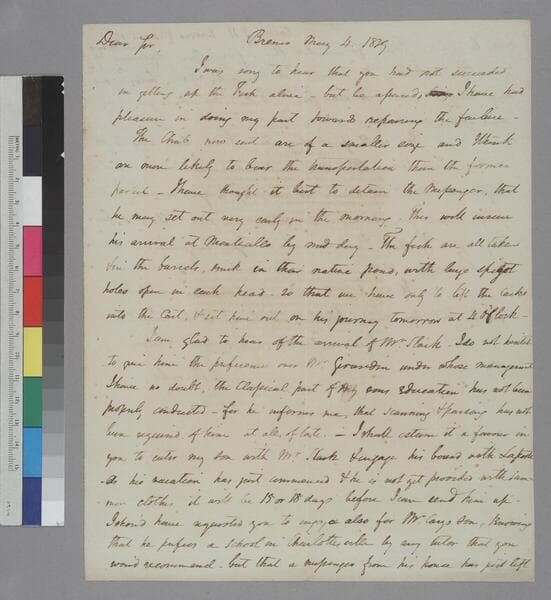 Dear Sir, Bremo May 4. 1819
I was sorry to hear that you had not succeeded
in getting up the Fish alive - but be assured, I have had
pleasure in doing my part towards repairing the failure -
The Chub now sent are of a smaller size and I think
are more likely to bear the transportation than the former
parcel - I have thought it best to detain the Messenger, that
he may set out very early in the morning. This will insure
his arrival at Monticello by mid-day - The fish are all taken
in the barrels, sunk in their native pond, with large spigot
holes open in each head - so that we have only to lift the casks
into the Cart, & set him out on his journey tomorrow at 4 OClock -
I am glad to hear of the arrival of Mr Stack. I do not hesitate
to give him the preference over Mr Girardin under whose management
I have no doubt, the Classical part of my sons Education has not been
properly conducted - for he informs me, that scanning & parsing has not
been required of him at all, of late. - I shall esteem it a favour in
you to enter my son with Mr Stack & engage his board with Laporte
As his vacation has just commenced & he is not yet provided with sum-
mer clothes it will be 15 or 18 days before I can send him up -
I should have requested you to engage also for Mr Carys son, knowing
that he prefers a school in Charlottesville by any tutor that you
would recommend - but that a messenger from his house has just left